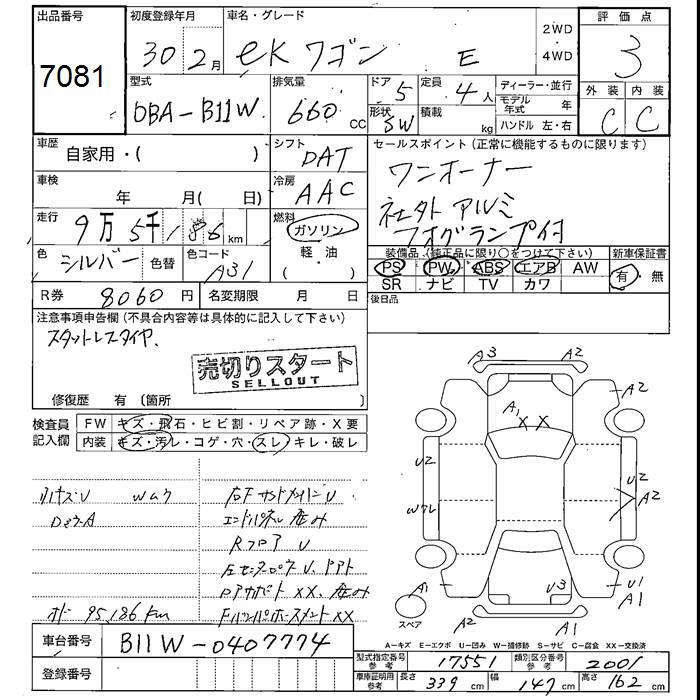 出品番号
7081
初度登録年月
30 2月
車名・グレード
eKワゴン E
2WD
4WD
評価点
3
型式
DBA-B11W
排気量
660 CC
ドア
5
形状
SW
定員
4人
積載
kg
ディーラー・並行
モデル年式 年
ハンドル 左・右
外装 内装
C C
車歴
自家用・( )
シフト
DAT
セールスポイント(正常に機能するものに限ります)
ワンオーナー
社外アルミ
フォグランプ付
車検
年 月(日 )
冷房
AAC
走行
9万5千186km
燃料
ガソリン
軽油
( )
色
シルバー
色替
色コード
A31
装備品(純正品に限り○をつけて下さい)
PS PW ABS エアB AW
SR ナビ TV カワ
新車保証書
有・無
R券 8060円
名変期限 月 日
後日品
注意事項申告欄(不具合内容等は具体的に記入して下さい)
スタットレスタイヤ.
売切りスタート
SELLOUT
修復歴 有〔箇所 〕
検査員記入欄
FW キズ・飛石・ヒビ割・リペア跡・X要
内装 キズ・汚レ・コゲ・穴・スレ・キレ・破レ
エンドパネル歪み
Rフロア U
オド 95,186 km
車台番号
B11W-0407774
登録番号
A3 A2
A1 XX
A2
U2
U2 A2
A1
U3
U1
A1
スペア
A2
A1
A-キズ E-エクボ U-凹み W-補修跡 S-サビ C-腐食 XX-交換済
型式指定番号 参考 17551
類別区分番号 参考 2001
車庫証明用 参考
長さ 339 cm
幅 147 cm
高さ 162 cm